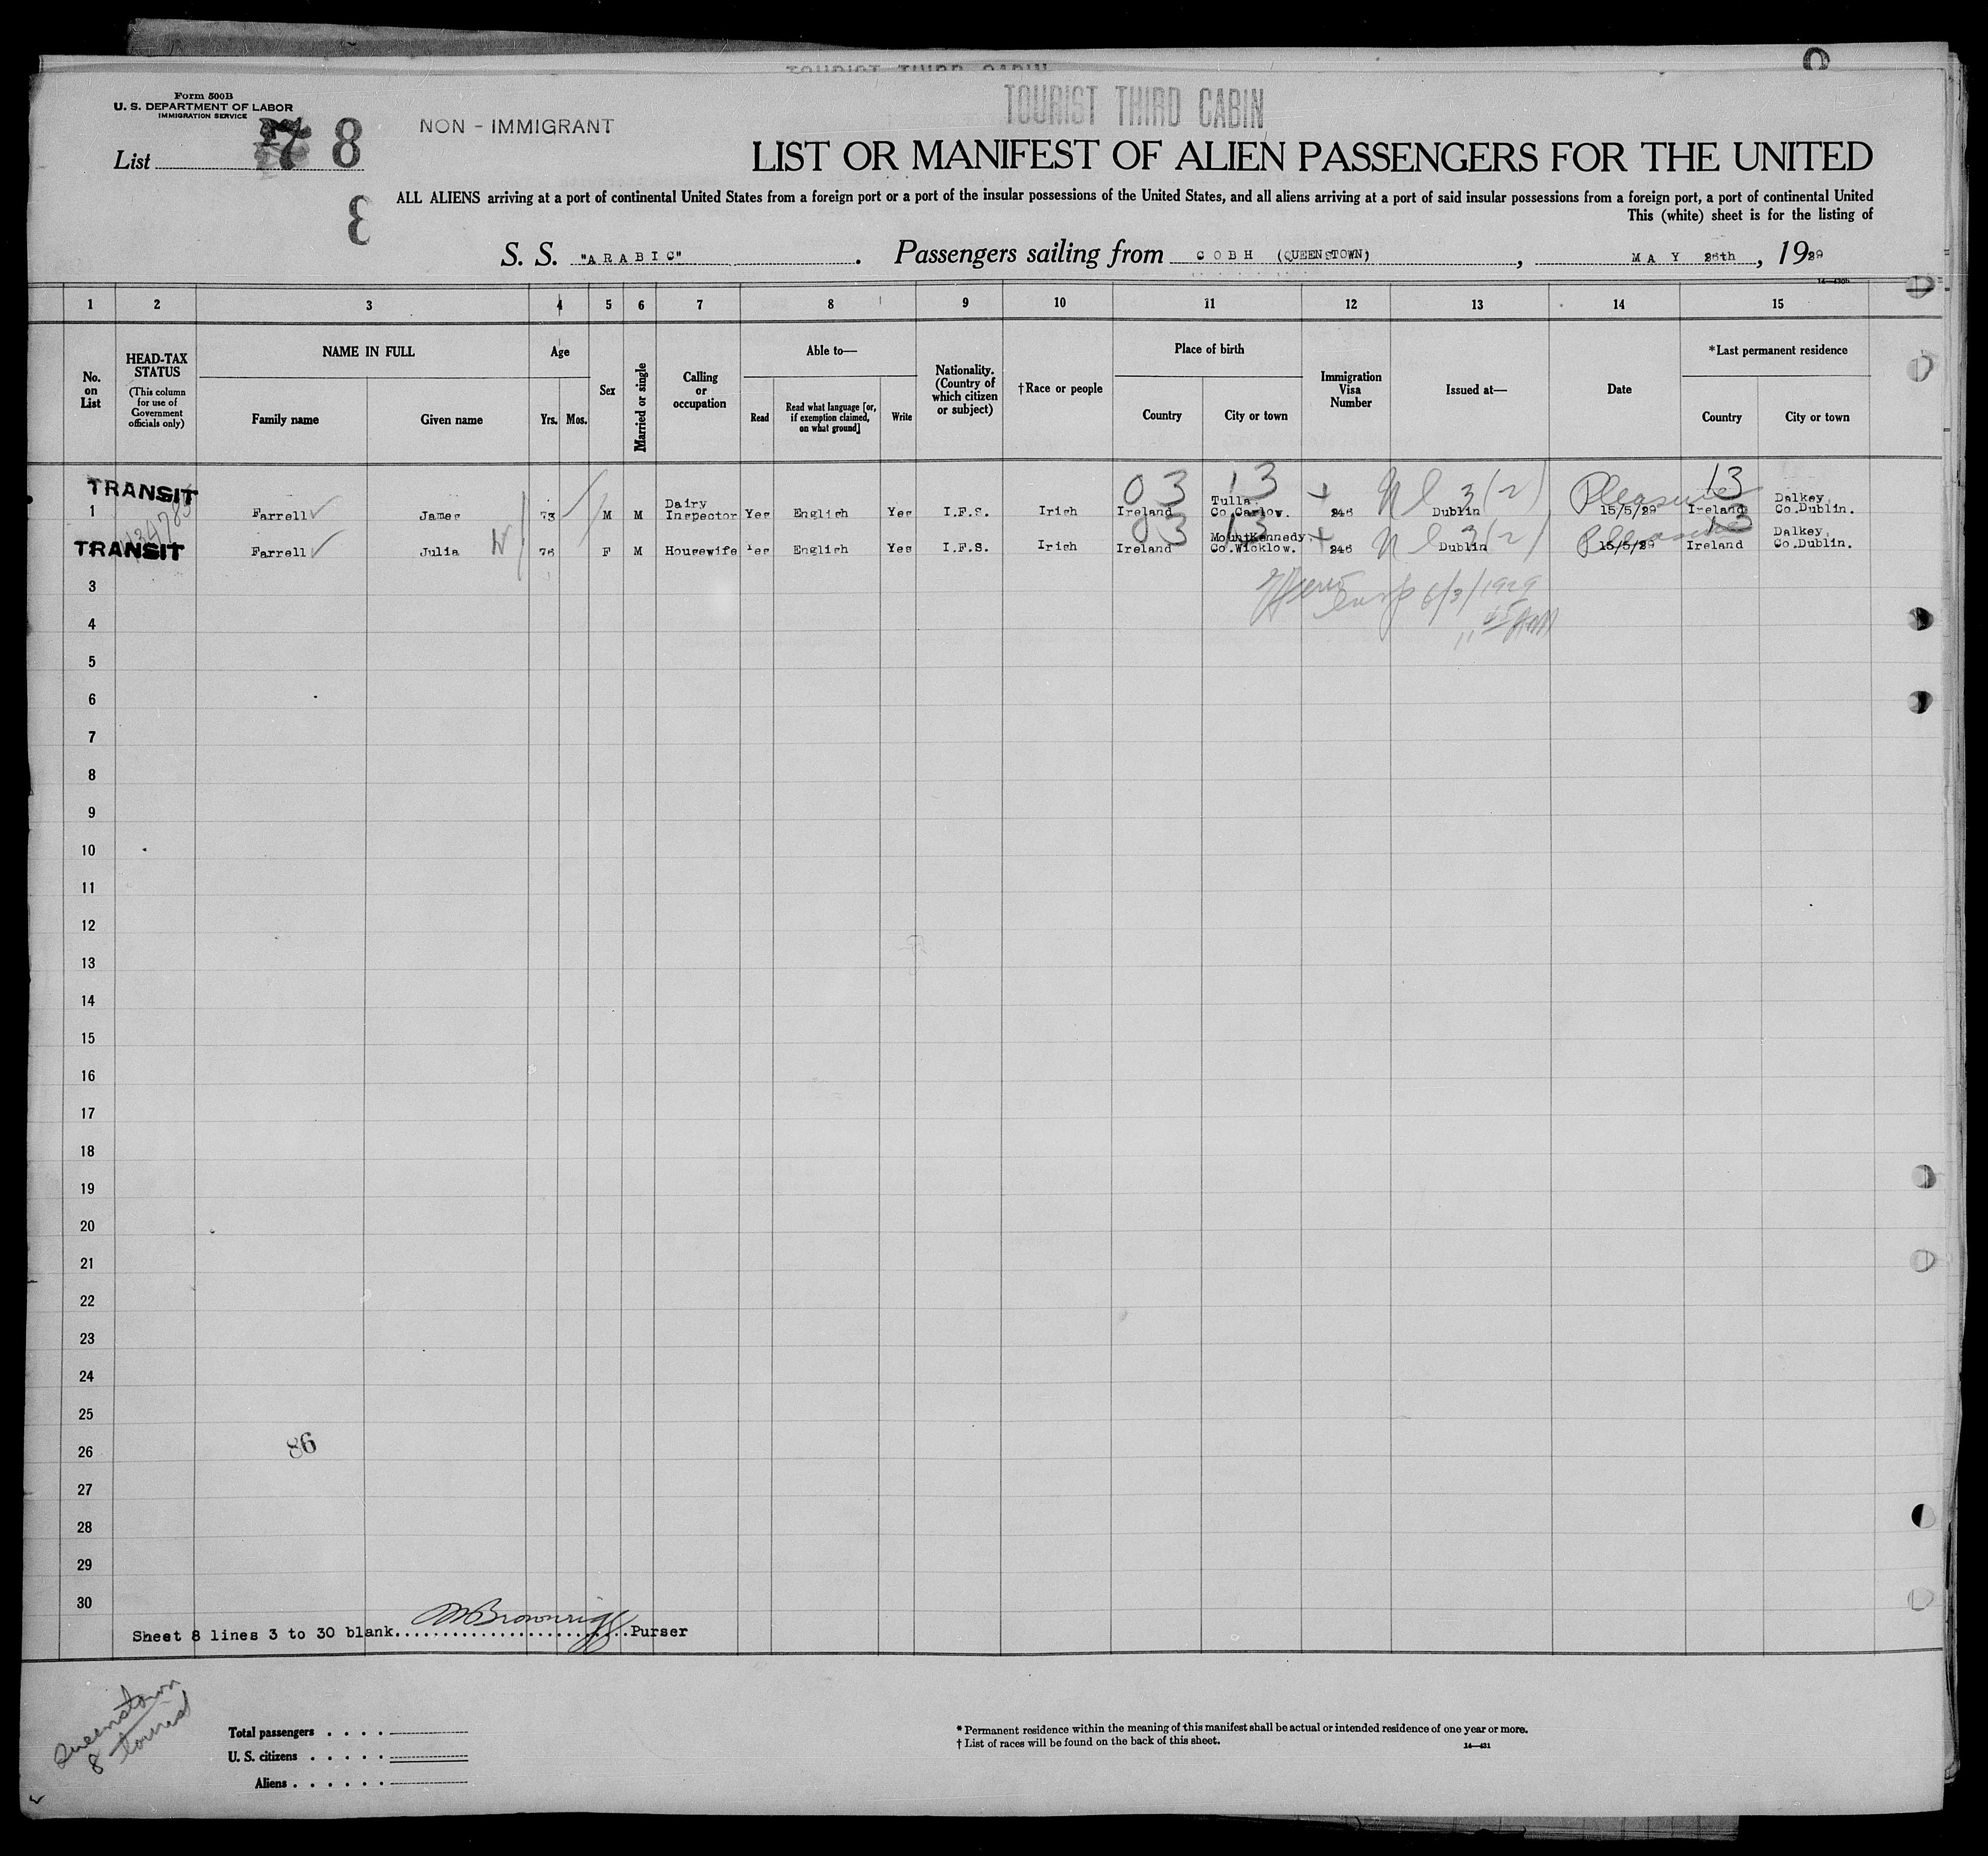 TOURIST THIRD CABIN
Form 500B
U. S. DEPARTMENT OF LABOR
IMMIGRATION SERVICE
NON - IMMIGRANT
TOURIST THIRD CABIN
List 7 8
3
LIST OR MANIFEST OF ALIEN PASSENGERS FOR THE UNITED
ALL ALIENS arriving at a port of continental United States from a foreign port or a port of the insular possessions of the United States, and all aliens arriving at a port of said insular possessions from a foreign port, a port of continental United
This (white) sheet is for the listing of
S. S. "ARABIC". Passengers sailing from COBH (QUEENSTOWN), MAY 26th, 1929
14—430b
1 2 3 4 5 6 7 8 9 10 11 12 13 14 15
No. on List
HEAD-TAX STATUS
(This column for use of Government officials only)
NAME IN FULL
Family name
Given name
Age
Yrs. Mos.
Sex
Married or single
Calling or occupation
Able to—
Read
Read what language [or, if exemption claimed, on what ground]
Write
Nationality. (Country of which citizen or subject)
†Race or people
Place of birth
Country
City or town
Immigration Visa Number
Issued at—
Date
*Last permanent residence
Country
City or town
TRANSIT
03 13 3(2) Pleasure 13
1 Farrell James 73 M M Dairy Inspector Yes English Yes I.F.S. Irish Ireland Tulla. Co.Carlow. 246 Dublin 15/5/29 Ireland Dalkey, Co.Dublin.
03 13 3(2) Pleasure 13
TRANSIT Farrell Julia 76 F M Housewife Yes English Yes I.F.S. Irish Ireland MountKennedy. Co.Wicklow. 246 Dublin 15/5/29 Ireland Dalkey, Co.Dublin.
3
6/3/1929
4
11 45 AM
5
6
7
8
9
10
11
12
13
14
15
16
17
18
19
20
21
22
23
24
25
26
86
27
28
29
30
Sheet 8 lines 3 to 30 blank. Brownrigg Purser
Queenstown
8 tourist
Total passengers
U. S. citizens
Aliens
* Permanent residence within the meaning of this manifest shall be actual or intended residence of one year or more.
† List of races will be found on the back of this sheet.
14—431